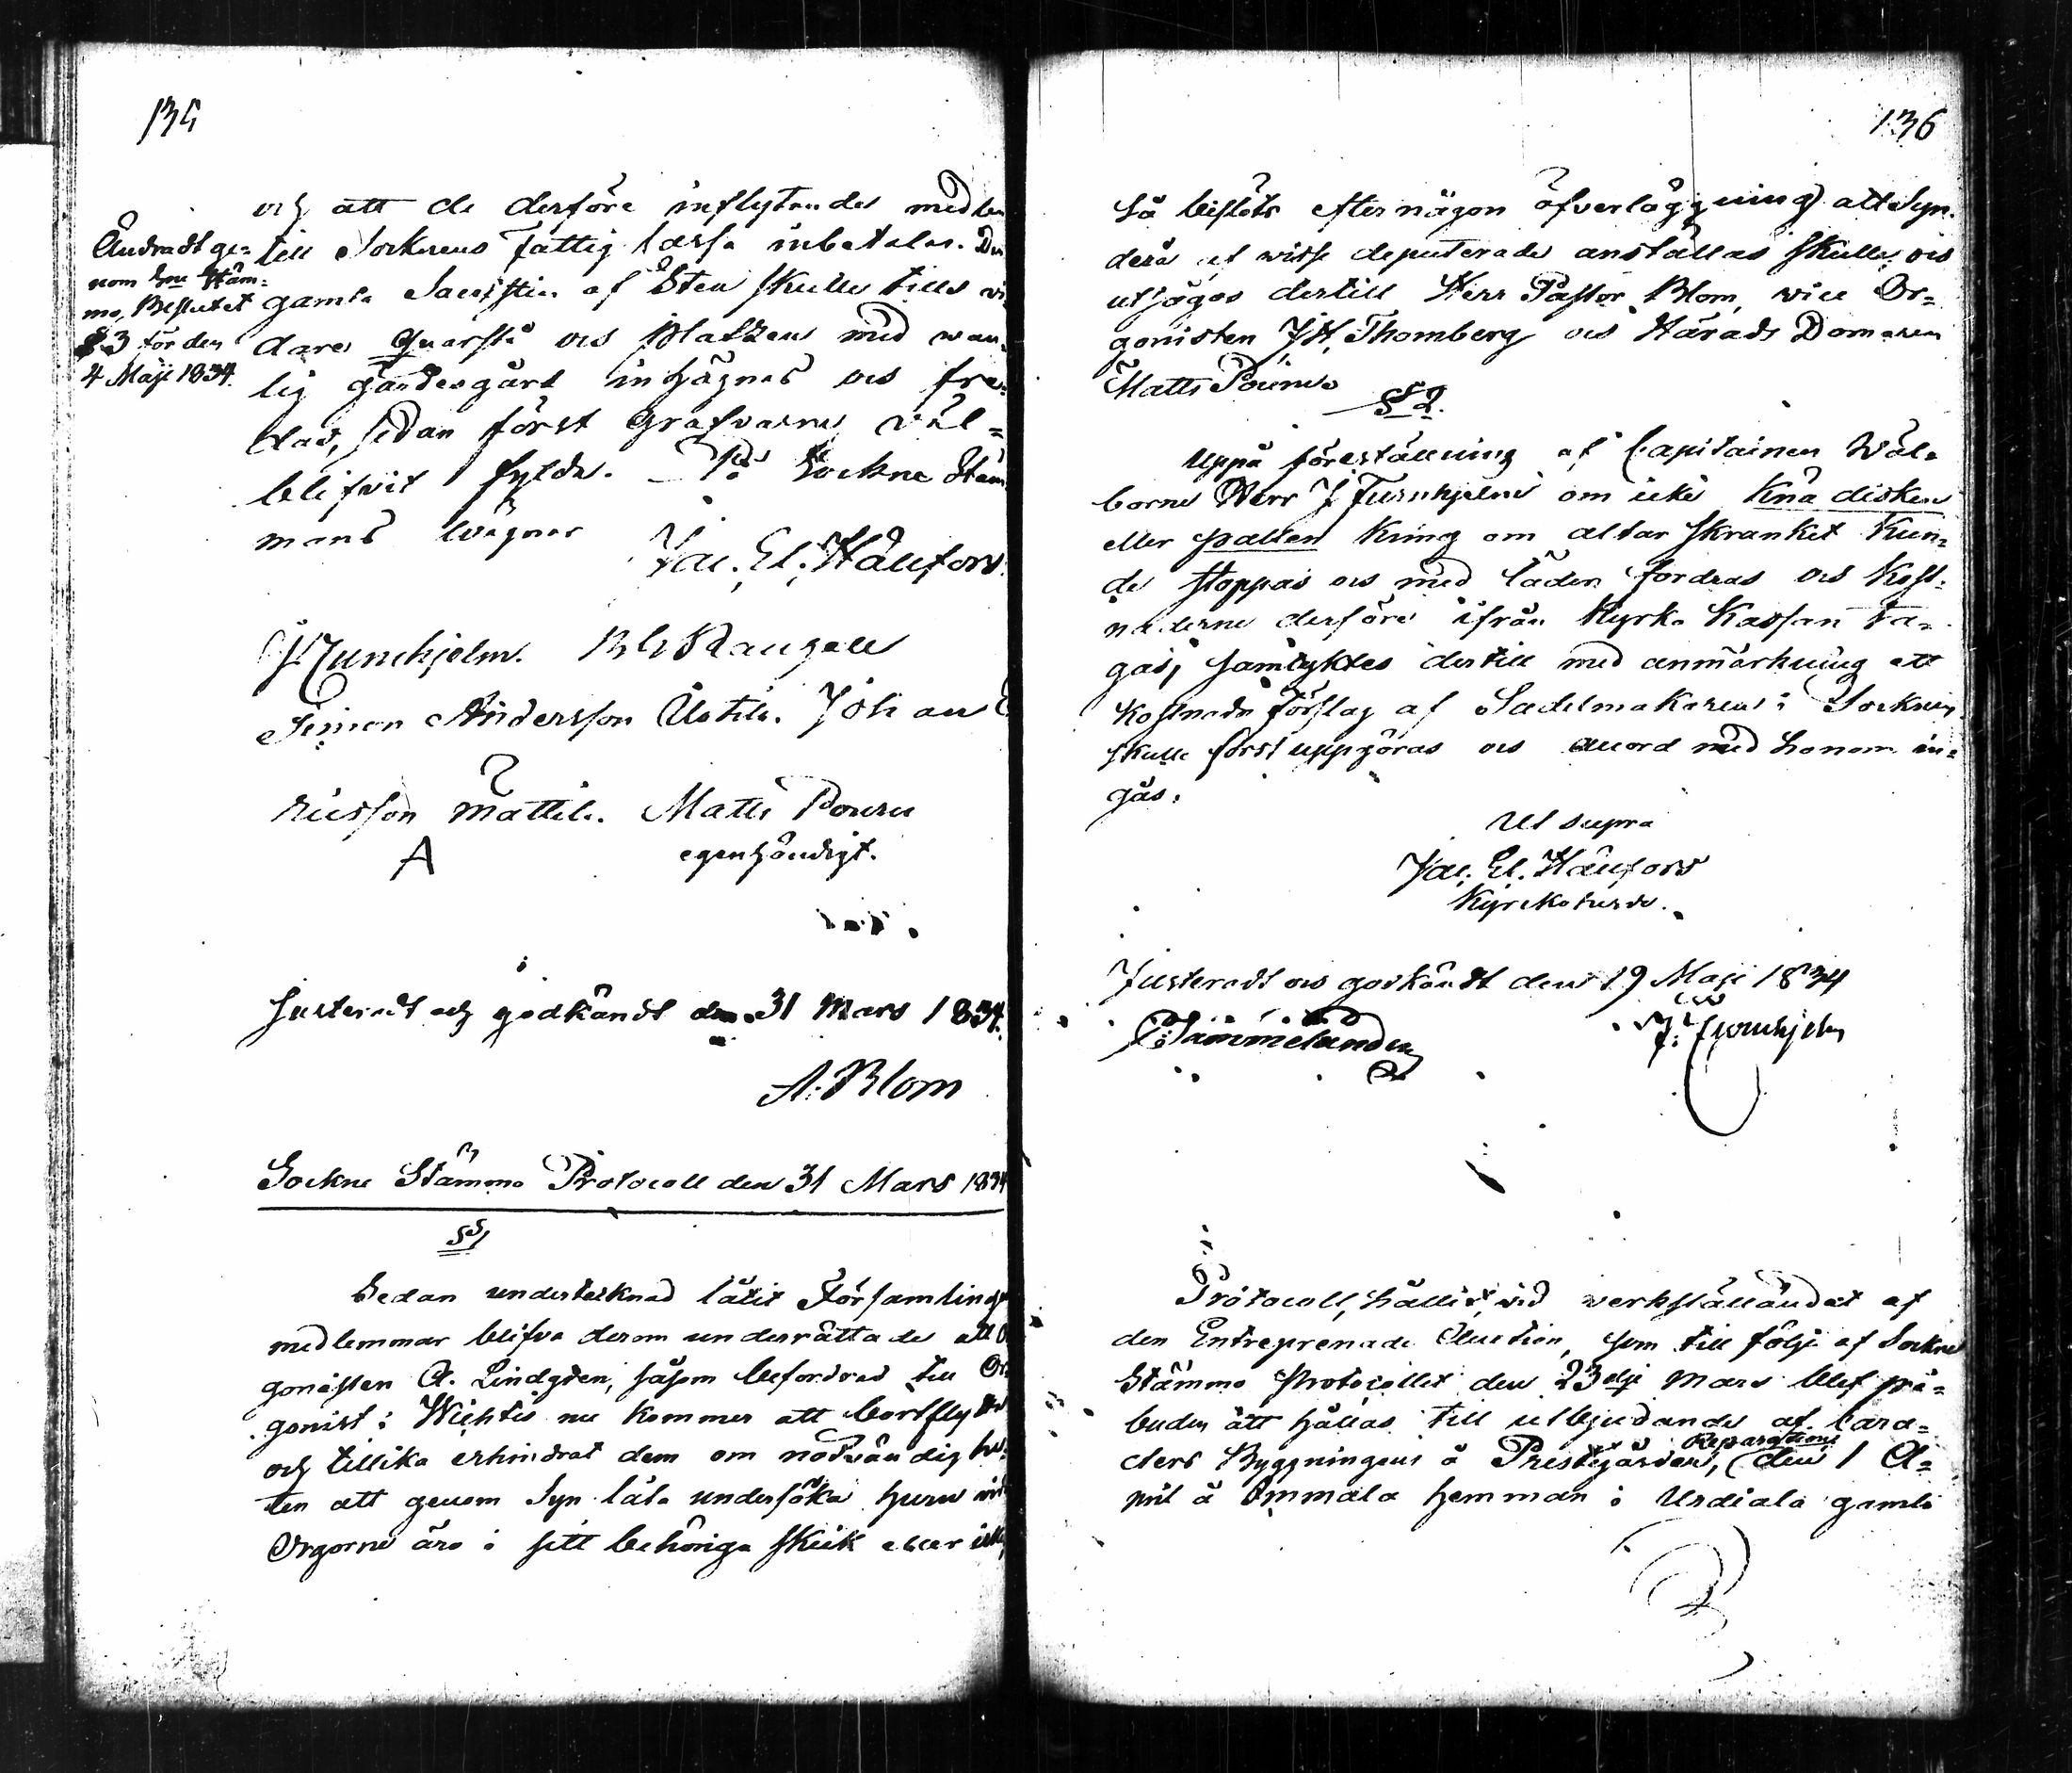 135
och att de derföre inflytande medlen
till Sockens Fattig Cassa inbetalas. Den
gamla Sacristian af Sten skulle tills vi-
dare quarstå och Platzen med van-
lig gärdesgård inhägnas och fre-
das, sedan först grafvarne väl-
blifvit fylde. På Sockne Stäm-
mans vägnar
Jac. El. Hällfors.
Ändradt ge-
nom Sne Stäm-
mo, Beslutet
§ 3 för den
4 Maji 1834.
J. Furuhjelm.
Simon Andersson Uotila. Johan
Ericsson Mattila. Matts Pounu
A egenhändigt.
Justeradt och godkändt den 31 Mars 1834.
A. Blom
Sockne Stämmo Protocoll den 31 Mars 1834
§ 1
Sedan undertecknad låtit Församlings
medlemmar blifva derom underrättade att Or-
gonisten A. Lindgren, såsom befordrad till Or-
gonist i Wichtis nu kommer att bortflytta
och tillika erhindrat dem om nödvändighe-
ten att genom Syn låta undersöka huru vida
Orgorne äro i sitt behöriga skick eller icke,
136
Så beslöts efter någon öfverläggning att Syn
derå af visse deputerade anställas skulle, och
utsågos dertill Herr Pastor Blom, vice Or-
gonisten J.H. Thomberg och Härads Domaren
Matts Pounu
§ 2.
Uppå föreställning af Capitainen Wäl-
borne Herr J Furuhjelm om icke Knä disken
eller pallen kring om altar skranket kun-
de stoppas och med läder fordras och kost-
naderne derföre ifrån Kyrko Kassan ta-
gas, samtyktes dertill med anmärkning att
kostnads förslag af Sadelmakaren i Socknen
skulle först uppgöras och accord med honom in-
gås.
Ut supra
Jac. El. Hällfors
Kyrckoherde.
Justeradt och godkändt den 19 Maji 1834
J. Furuhjelm
Protocoll, hållit vid verkställandet af
den Entreprenade Auction, som till följe af Sockne
Stämmo Protocollet den 23dje Mars blef på-
buden att hållas till utbjudande af Cara-
cters Byggningens å Prestegården, Reparation (den 1 A-
pril å Ommala hemman i Urdiala gamla